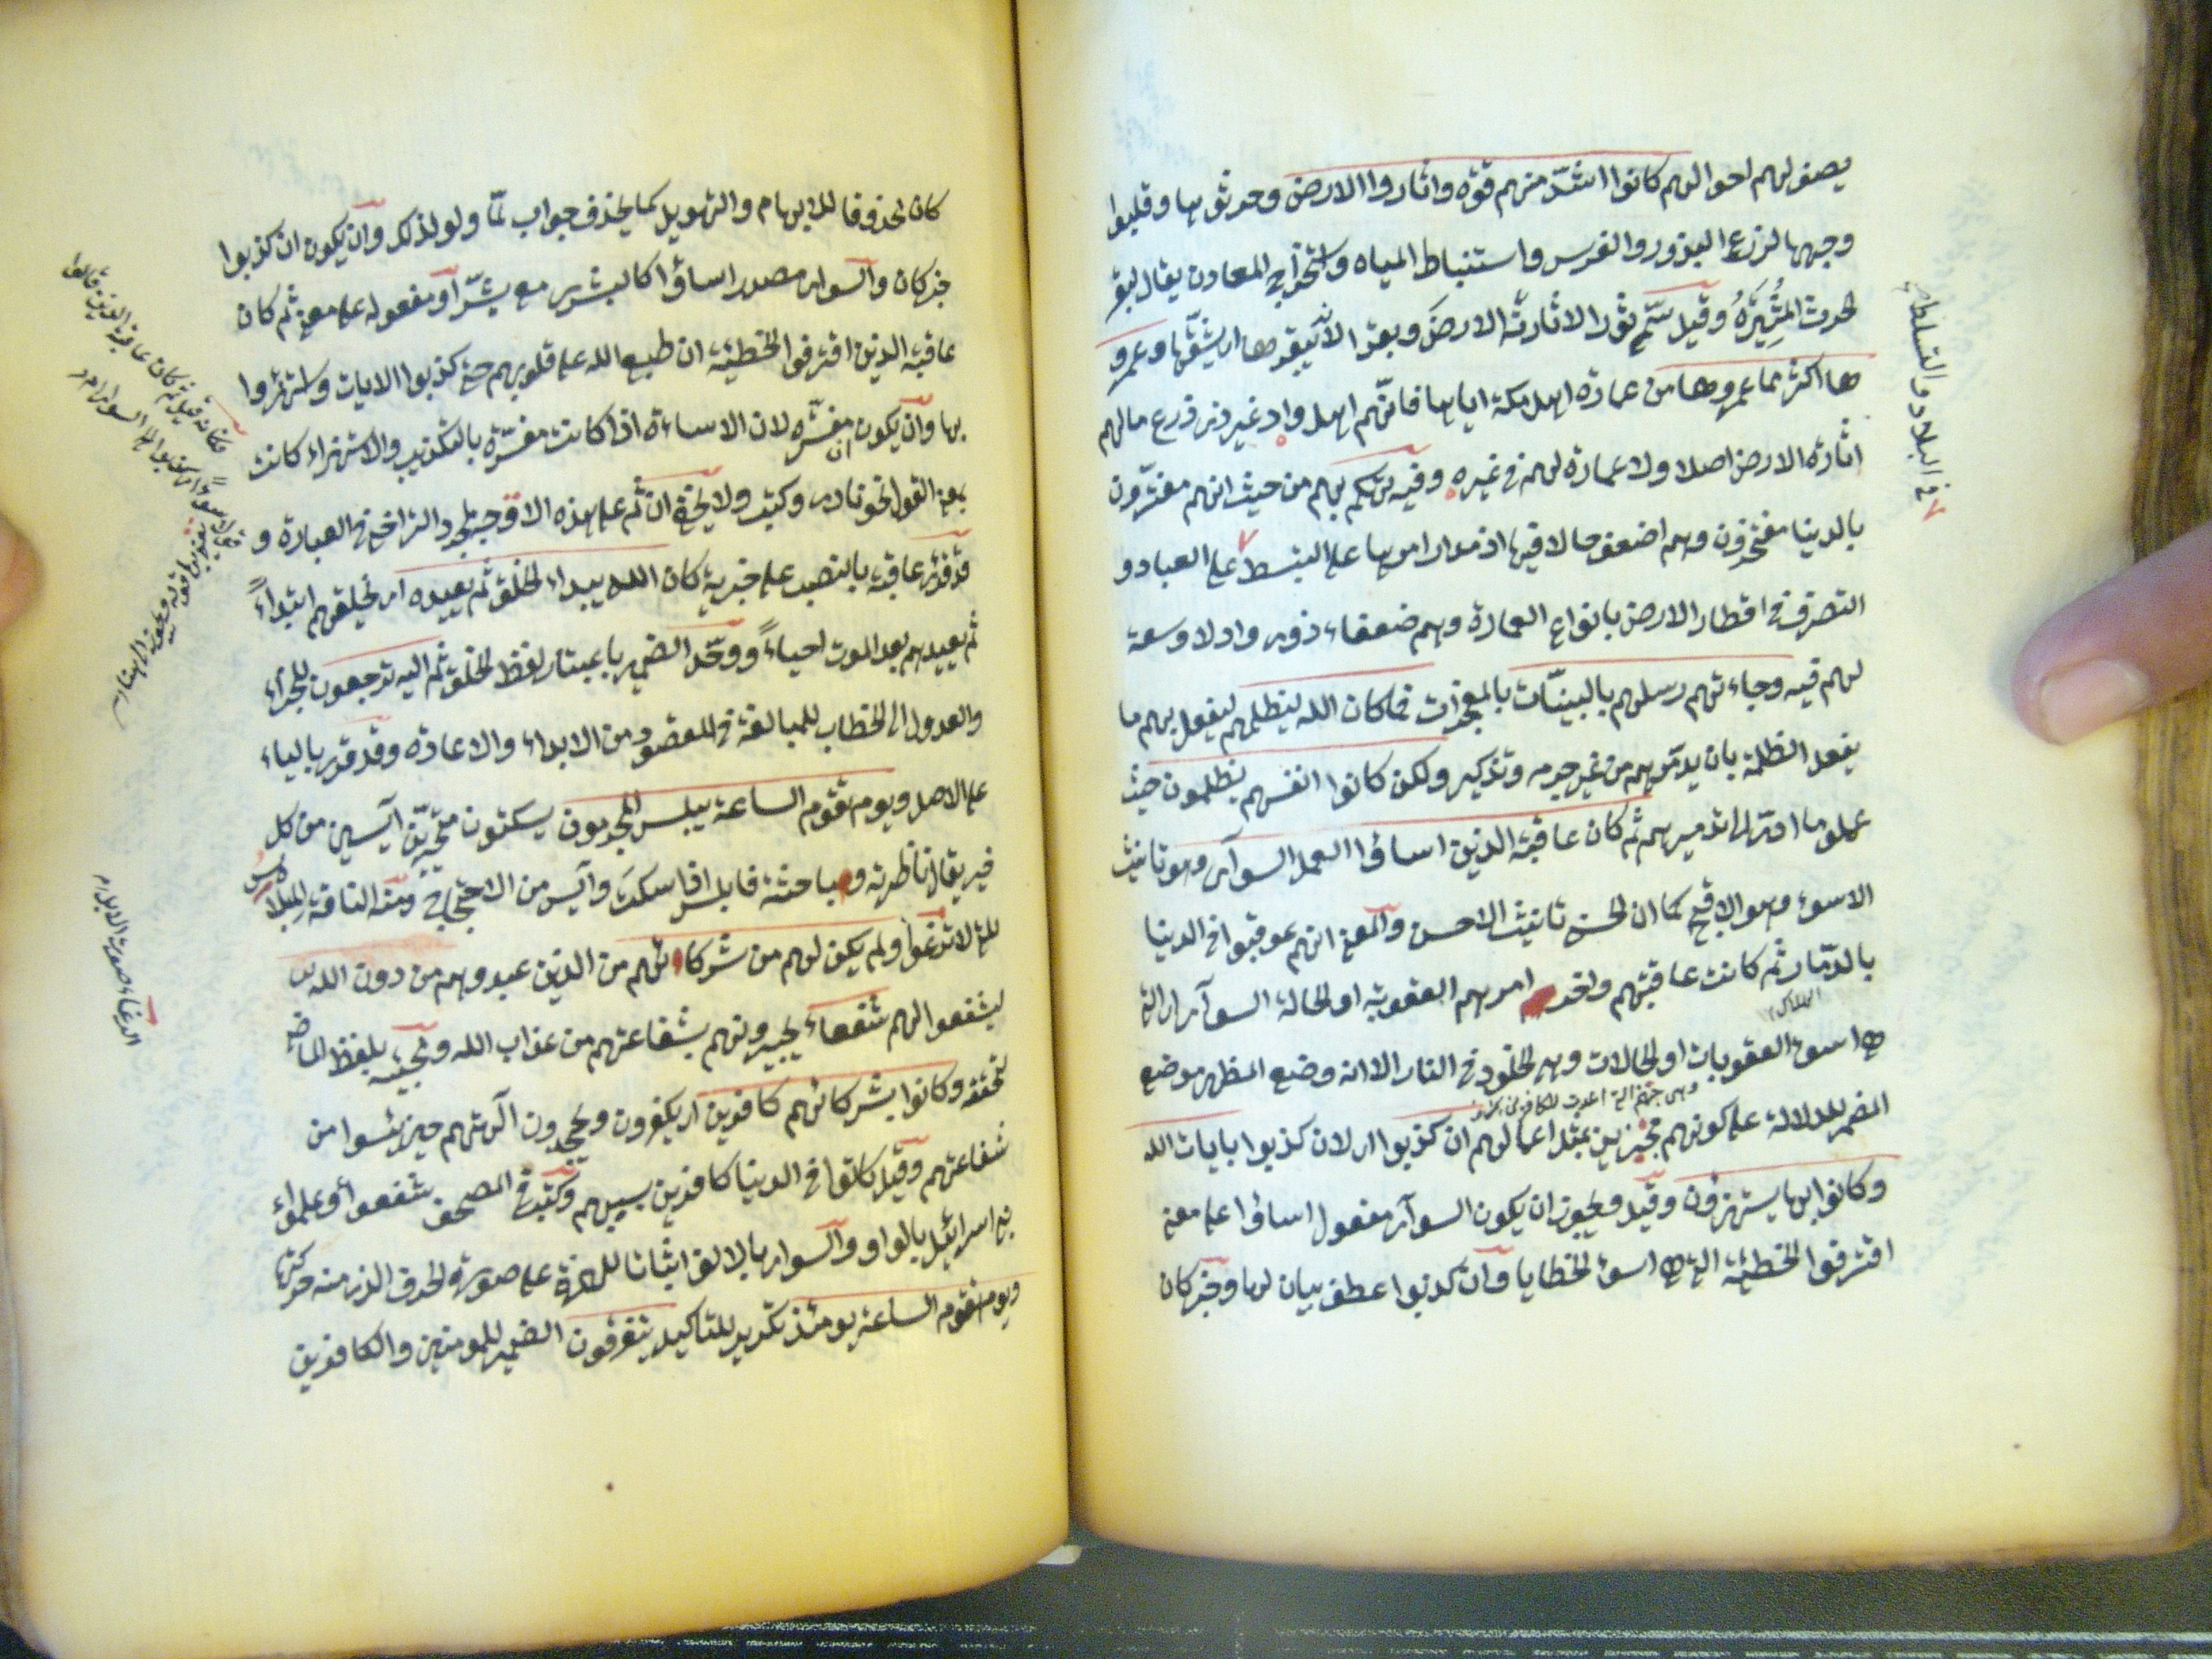 يصف لهم احوالهم كانوا اشدّ منهم قوّة واثاروا الارض وحرثوها وقلبوا
وجهها لزرع البذور والغرس واستنباط المياه واستخراج المعادن يقال لبقر
الحرث المُثِيرَةُ وقيل سمّي ثورا لاثارته الارضَ وبقرا لانه يبقرها اى يشقّها وعمرو
ها اكثر مما عمروها من عمارة اهل مكة اياها فانّهم اهل واد غير ذى زرع مالهم
اثارة الارض اصلا ولا عمارة لهم فى غيره وفيه تهكّم بهم من حيث انهم مغترّون
بالدنيا مفتخرون وهم اضعف حالا فيها اذ مدار امرها على التبسّط على العباد و
التصرف فى اقطار الارض بانواع العمارة وهم ضعفاء ذوو واد لا وسعة
لهم فيه وجاءتهم رسلهم بالبيّنات بالمعجزات فما كان الله ليظلمهم ليفعل بهم ما
يفعل الظلمة بان يدمّرهم من غير جرم وتذكير ولكن كانوا انفسهم يظلمون حيث
عملوا ما ادّى الى تدميرهم ثم كان عاقبة الذين اساؤا العمل السوآى وهو تانيث
الاسوء وهو الاقبح كما ان الحسنى تانيث الاحسن والمعنى انهم عوقبوا فى الدنيا
بالدمّار ثم كانت عاقبتهم واخر امرهم العقوبة او الحالة السوآى اى التى
الهلاك
هى اسوء العقوبات او الحالات وهى الخلود فى النار الا انه وضع المظهر موضع
وهى جهنم التى اعدت للكافرين
المضمر للدلالة على كونهم مجزيين بمثل اعمالهم ان كذبوا اى لان كذبوا بايات الله
وكانوا بها يستهزؤن وقيل ويجوز ان يكون السوآى مفعول اساؤا على معنى
اقترفوا الخطيئة التى هى اسوء الخطايا وان كذبوا عطف بيان لها وخبر كان
فى البلاد والتسلط
كان محذوفا للابهام والتهويل كما يحذف جواب لمّا ولو لذلك وان يكون ان كذبوا
خبر كان والسواى مصدر اساؤا كالبشرى مع بشّر او مفعوله على معنى ثم كان
عاقبة الذين اقترفوا الخطيئة ان طبع الله على قلوبهم حتى كذبوا الايات واستهزؤا
بها وان يكون ان مفسّرة لان الاساءة اذا كانت مفسّرة بالتكذيب والاستهزاء كانت
بمعنى القول نحو نادى وكتب ولا يخفى ان ثم على هذه الاوجه لمجرد التراخى فى العبارة و
قد قرئ عاقبة بالنصب على خبرية كان الله يبداء الخلق ثم يعيده اى يخلقهم ابتداءً
ثم يعيدهم بعد الموت احياءً ووحّد الضمير باعتبار لفظ الخلق ثم اليه ترجعون للجزاء
والعدول الى الخطاب للمبالغة فى المقصود من الابداء والاعادة وقد قرئ بالياء
على الاصل ويوم تقوم الساعة يبلس المجرمون يسكتون متحيّرين آيسين من كل
خير يقال ناظرته وباحثته فابلس اذا سكت وآيس من الاحتجاج ومنه الناقة المبلاس
للتى لا ترغوا ولم يكن لهم من شركائهم من الذين عبدوهم من دون الله
ليشفعوا لهم شفعاء يجيرونهم بشفاعتهم من عذاب الله ومجيئه بلفظ الماضى
لتحققه وكانوا بشركائهم كافرين اى يكفرون ويجحدون آلهتهم حين يئسوا من
شفاعتهم وقيل كانوا فى الدنيا كافرين بسببهم وكتب فى المصحف شفعوا وعلمؤا
بنى اسرائيل بالواو والسواى بالالف اثباتا للهمزة على صورة الحرف الذى منه حركتها
ويوم تقوم الساعة يومئذ تكرير للتاكيد يتفرقون الضمير للمومنين والكافرين
فكانه قيل ثم كان عاقبة الذين
الرغاء صوت الابل